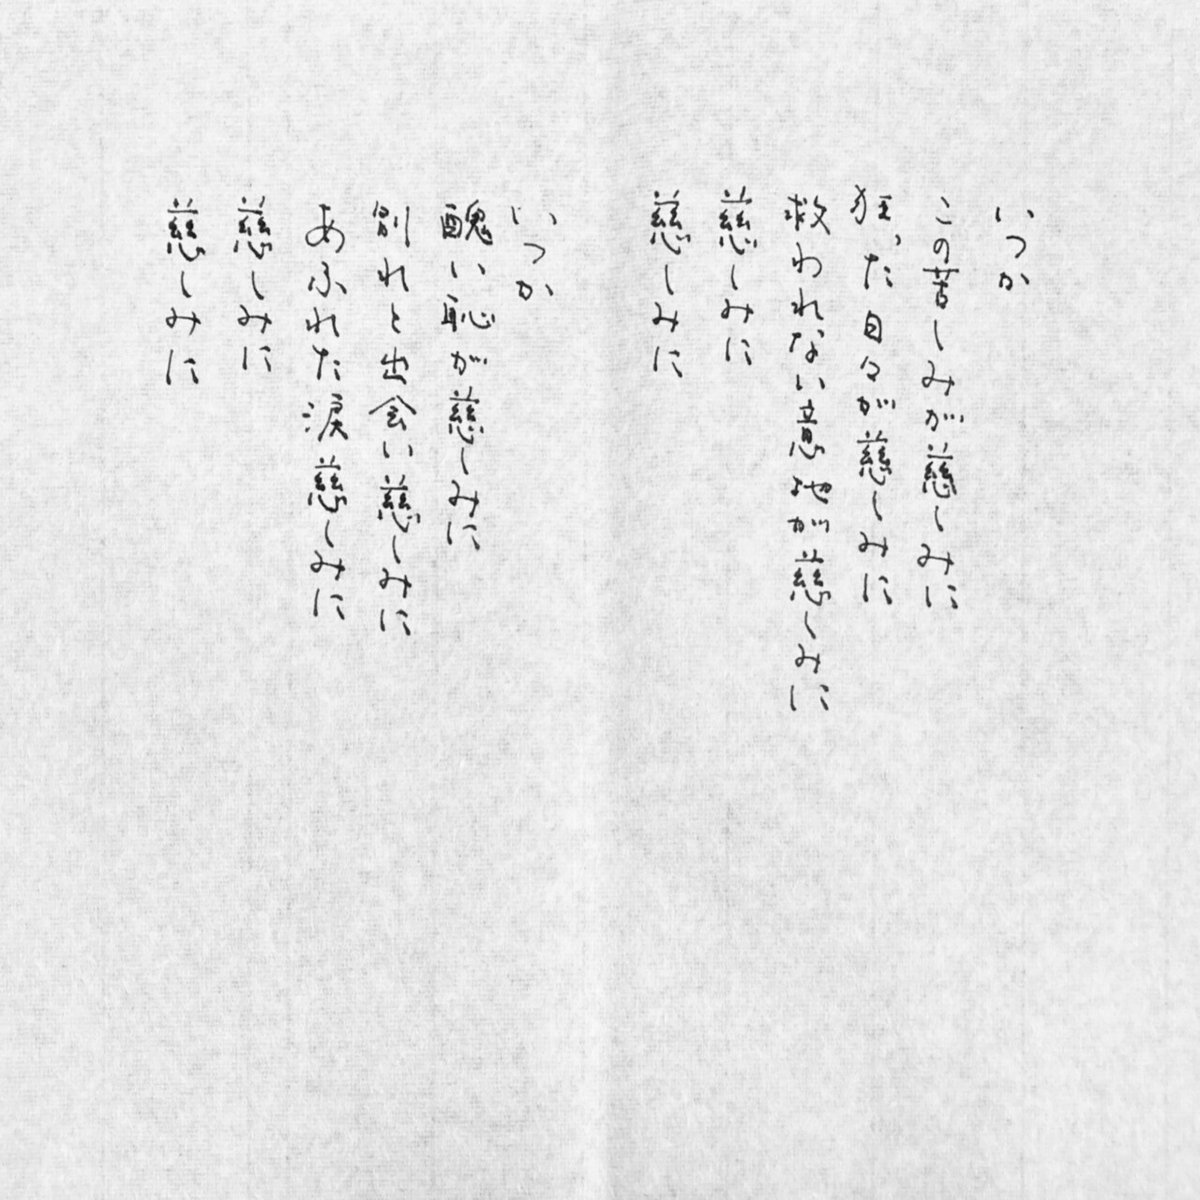 いつか
この苦しみが慈しみに
狂った日々が慈しみに
救われない意地が慈しみに
慈しみに
慈しみに
いつか
醜い恥が慈しみに
別れと出会い慈しみに
あふれた涙慈しみに
慈しみに
慈しみに